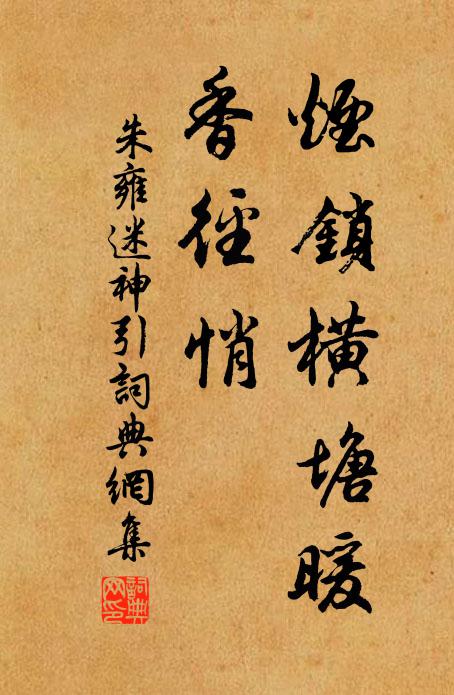 煙鎖橫塘暖
香徑悄
朱雍迷神引詞典網集
詞典網印